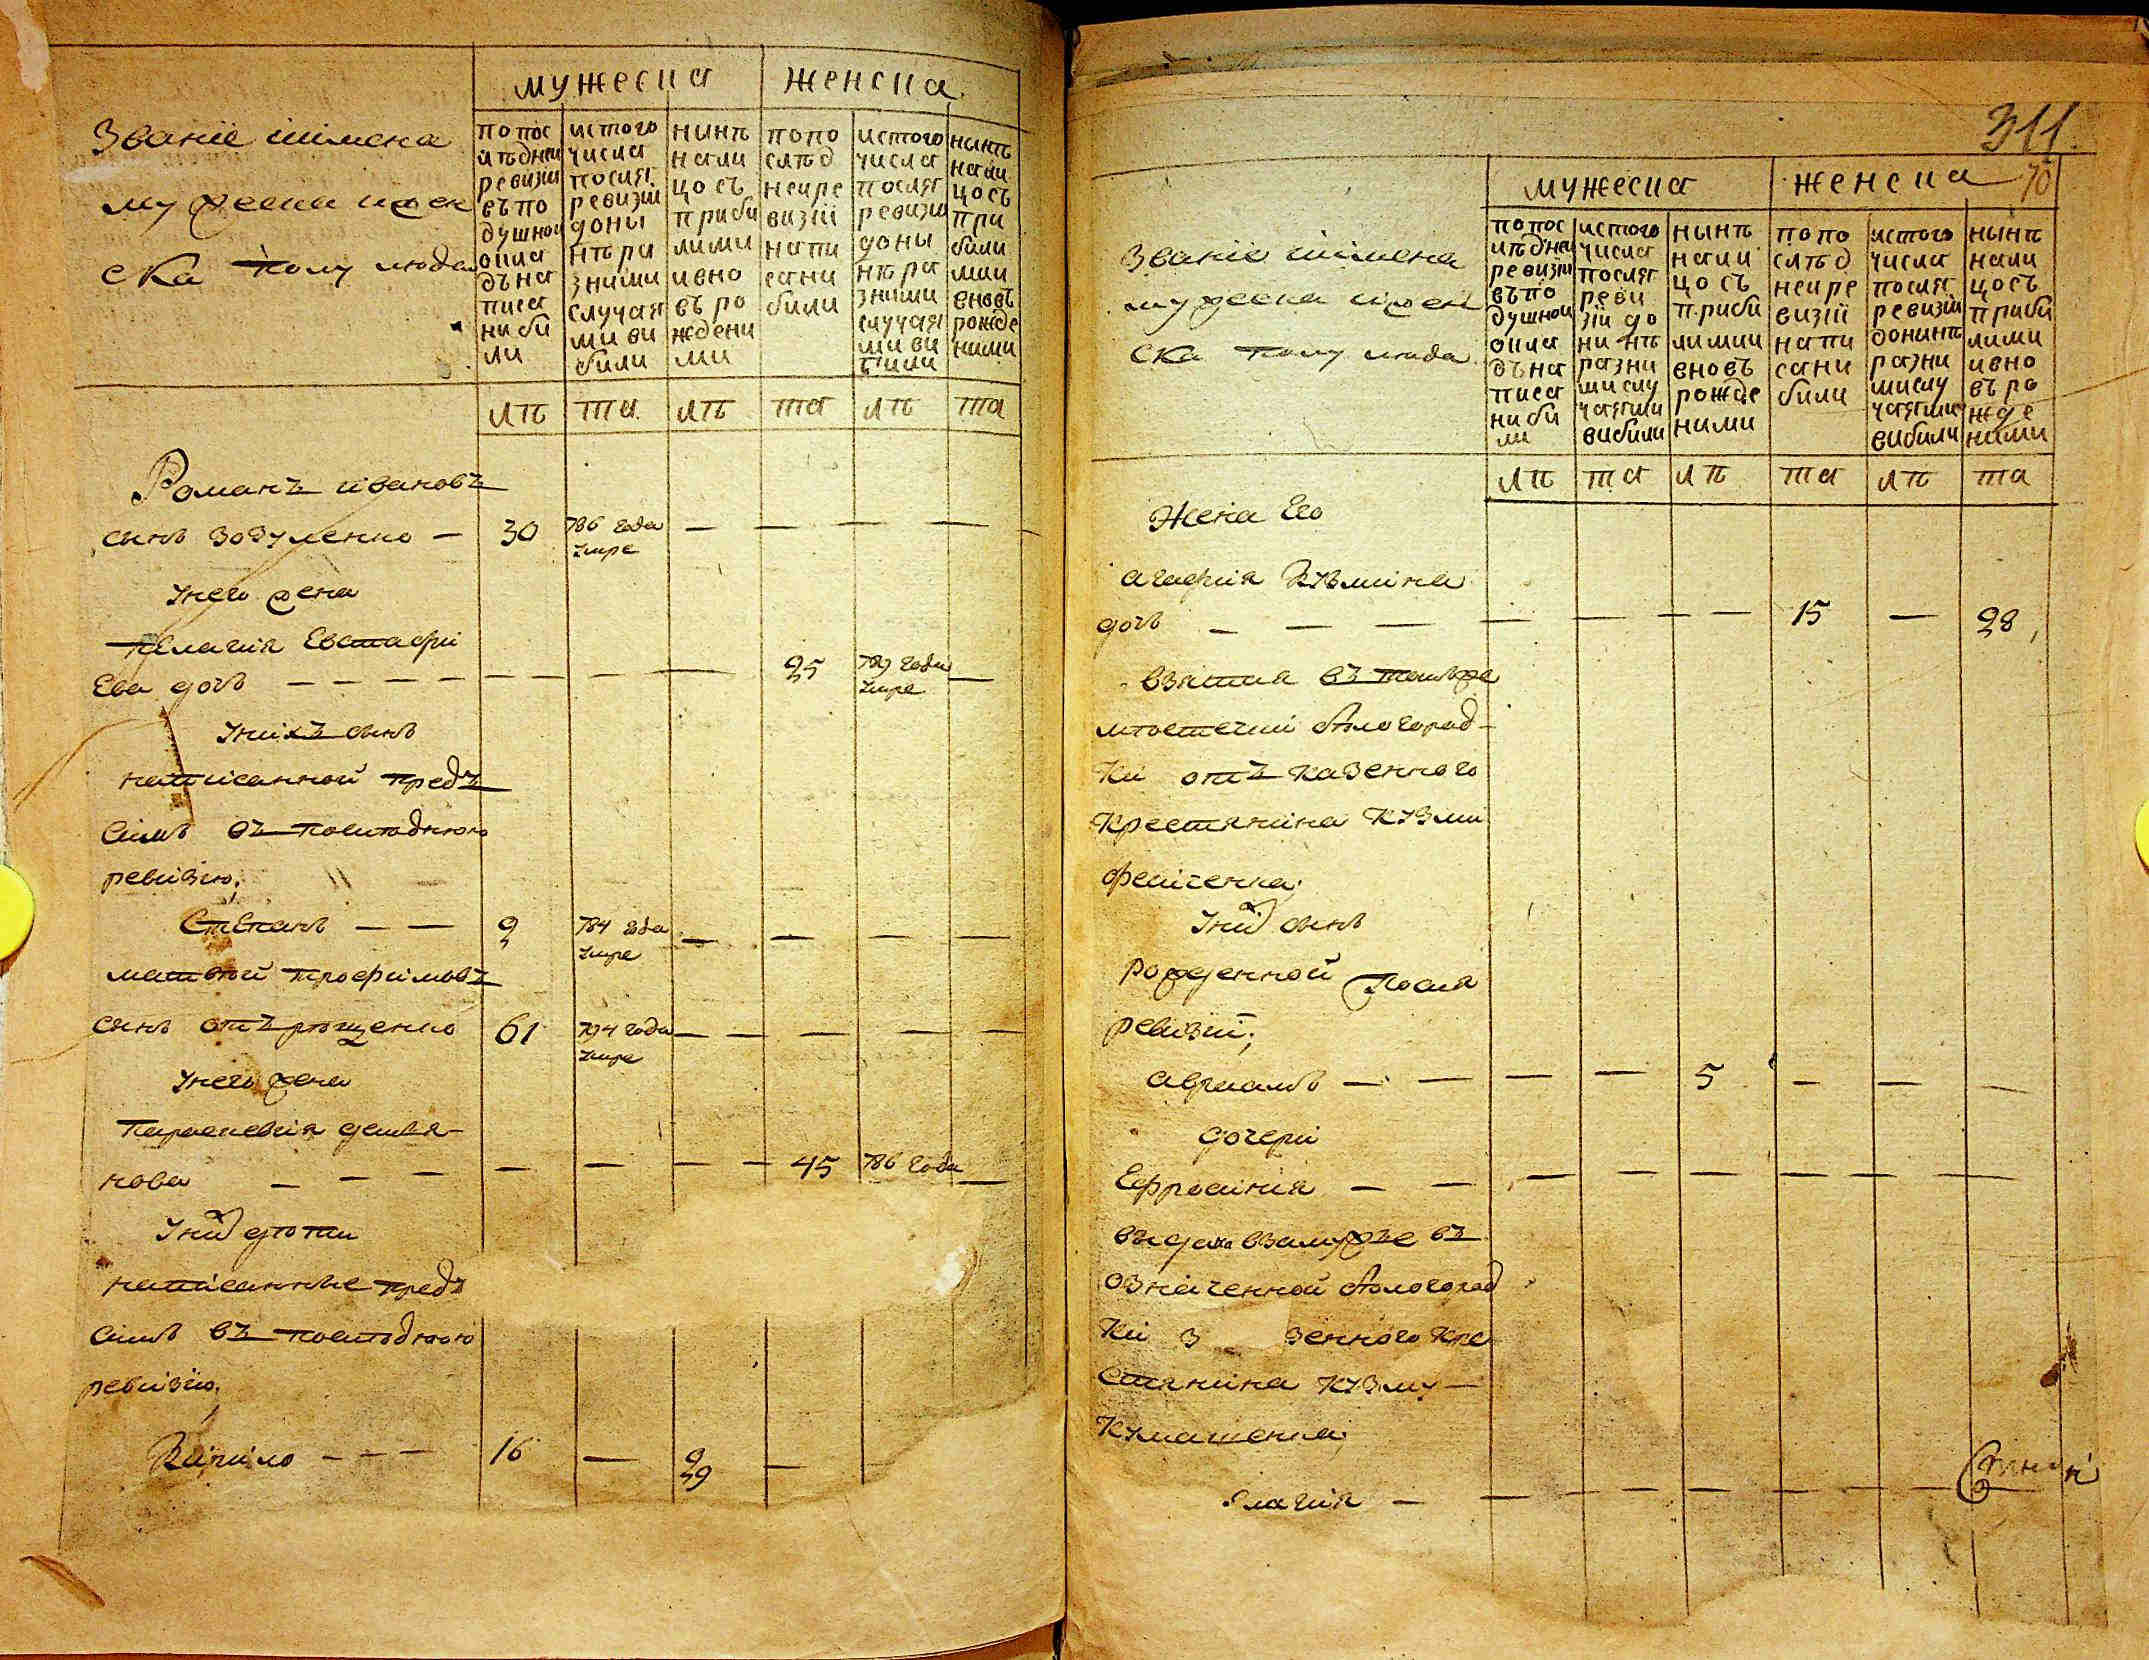 мужеска
женска
Званіе иимена
мужеска ижен
ска полу люде
попос
лѣднеи
ревизіи
въпо
душном
окла
дѣна
писа
ни би
ли
истого
числа
послѣ
ревизіи
доны
нѣра
зними
случая
ми ви
били
нынѣ
нали
цо съ
приби
лими
ивно
въ ро
ждени
ми
попо
слѣд
неире
визіи
напи
сани
били
истого
числа
послѣ
ревизіи
доны
нѣра
зними
случая
ми ви
били
нынѣ
нали
цосъ
при
били
ми
вновъ
рожде
ними
лѣ та лѣ та лѣ та
Романъ ивановъ
сынъ Зозуленко — 30 786 года — — — —
умре
Унего жена
пелагія Евстафі
Ева дочъ — — — — — — — — 25 789 года —
умре
Унихъ сынъ
написанной предъ
симъ въ последнюю
ревизію;
Степанъ — — 9 784 года — — — —
умре
матвей трофимовъ
сынъ 61 794 года — — — —
умре
Унего жена
параскевія демья-
нова — — — — — — — 45 786 года —
Унихъ дети
написанние предъ
симъ въ последнюю
ревизію;
Кирило — — — 16 — 29 —
311
70
мужеска
женска
Званіе иимена
мужеска ижен
ска полу люде
попос
лѣднеи
ревизіи
въпо
душном
окла
дѣна
писа
ни би
ли
истого
числа
послѣ
реви
зіи до
ни нѣ
разни
ми слу
чаями
вибили
нынѣ
нали
цо съ
приби
лимии
вновъ
рожде
ними
попо
слѣд
неире
визіи
напи
сани
били
истого
числа
послѣ
ревизіи
донинѣ
разни
мислу
чаями
вибили
нынѣ
нали
цосъ
приби
лими
ивно
въ ро
жде
ними
лѣ та лѣ та лѣ та
Жена Его
агафія Кузмина
дочъ — — — — — — — 15 — 28
взятая въ томъже
местечки Албогород-
ки отъ казенного
Крестянина Кузми
Унихъ сынъ
рожденной после
ревизіи;
авраамъ — — — — 5 — — —
дочери
Ефросинія — — — — — — — —
видана взамужье въ
означенной
ки з зенного кре
стянина Кузму
лагія — — — — — — —